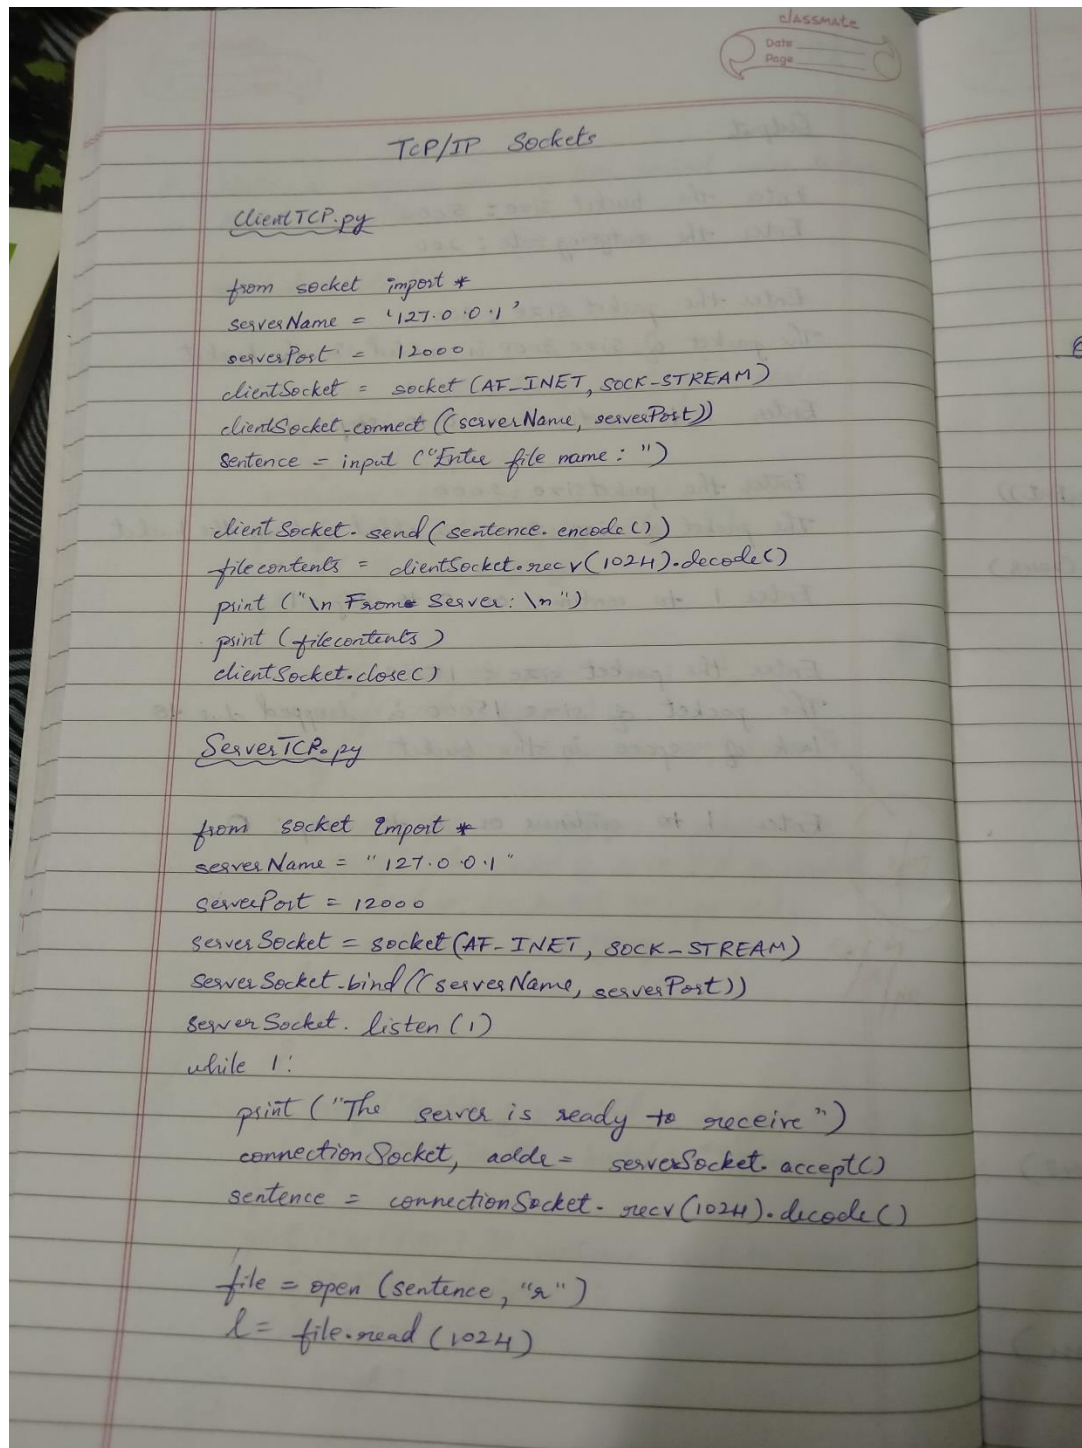 classmate
Date
Page
TCP/IP Sockets
ClientTCP.py
from socket import *
serverName = '127.0.0.1'
serverPort = 12000
clientSocket = socket (AF_INET, SOCK-STREAM)
clientSocket.connect ((serverName, serverPort))
Sentence = input ("Enter file name : ")
clientSocket. send(sentence. encode())
filecontents = clientSocket.recv(1024).decode()
print ("\n From Server: \n")
print (filecontents)
clientSocket.close()
ServerTCP.py
from socket import *
serverName = "127.0.0.1"
serverPort = 12000
serverSocket = socket(AF-INET, SOCK-STREAM)
serverSocket.bind((serverName, serverPort))
serverSocket. listen(1)
while 1:
print ("The server is ready to receive")
connectionSocket, addr = serverSocket. accept()
sentence = connectionSocket. recv(1024).decode()
file = open (sentence, "r")
l = file.read (1024)